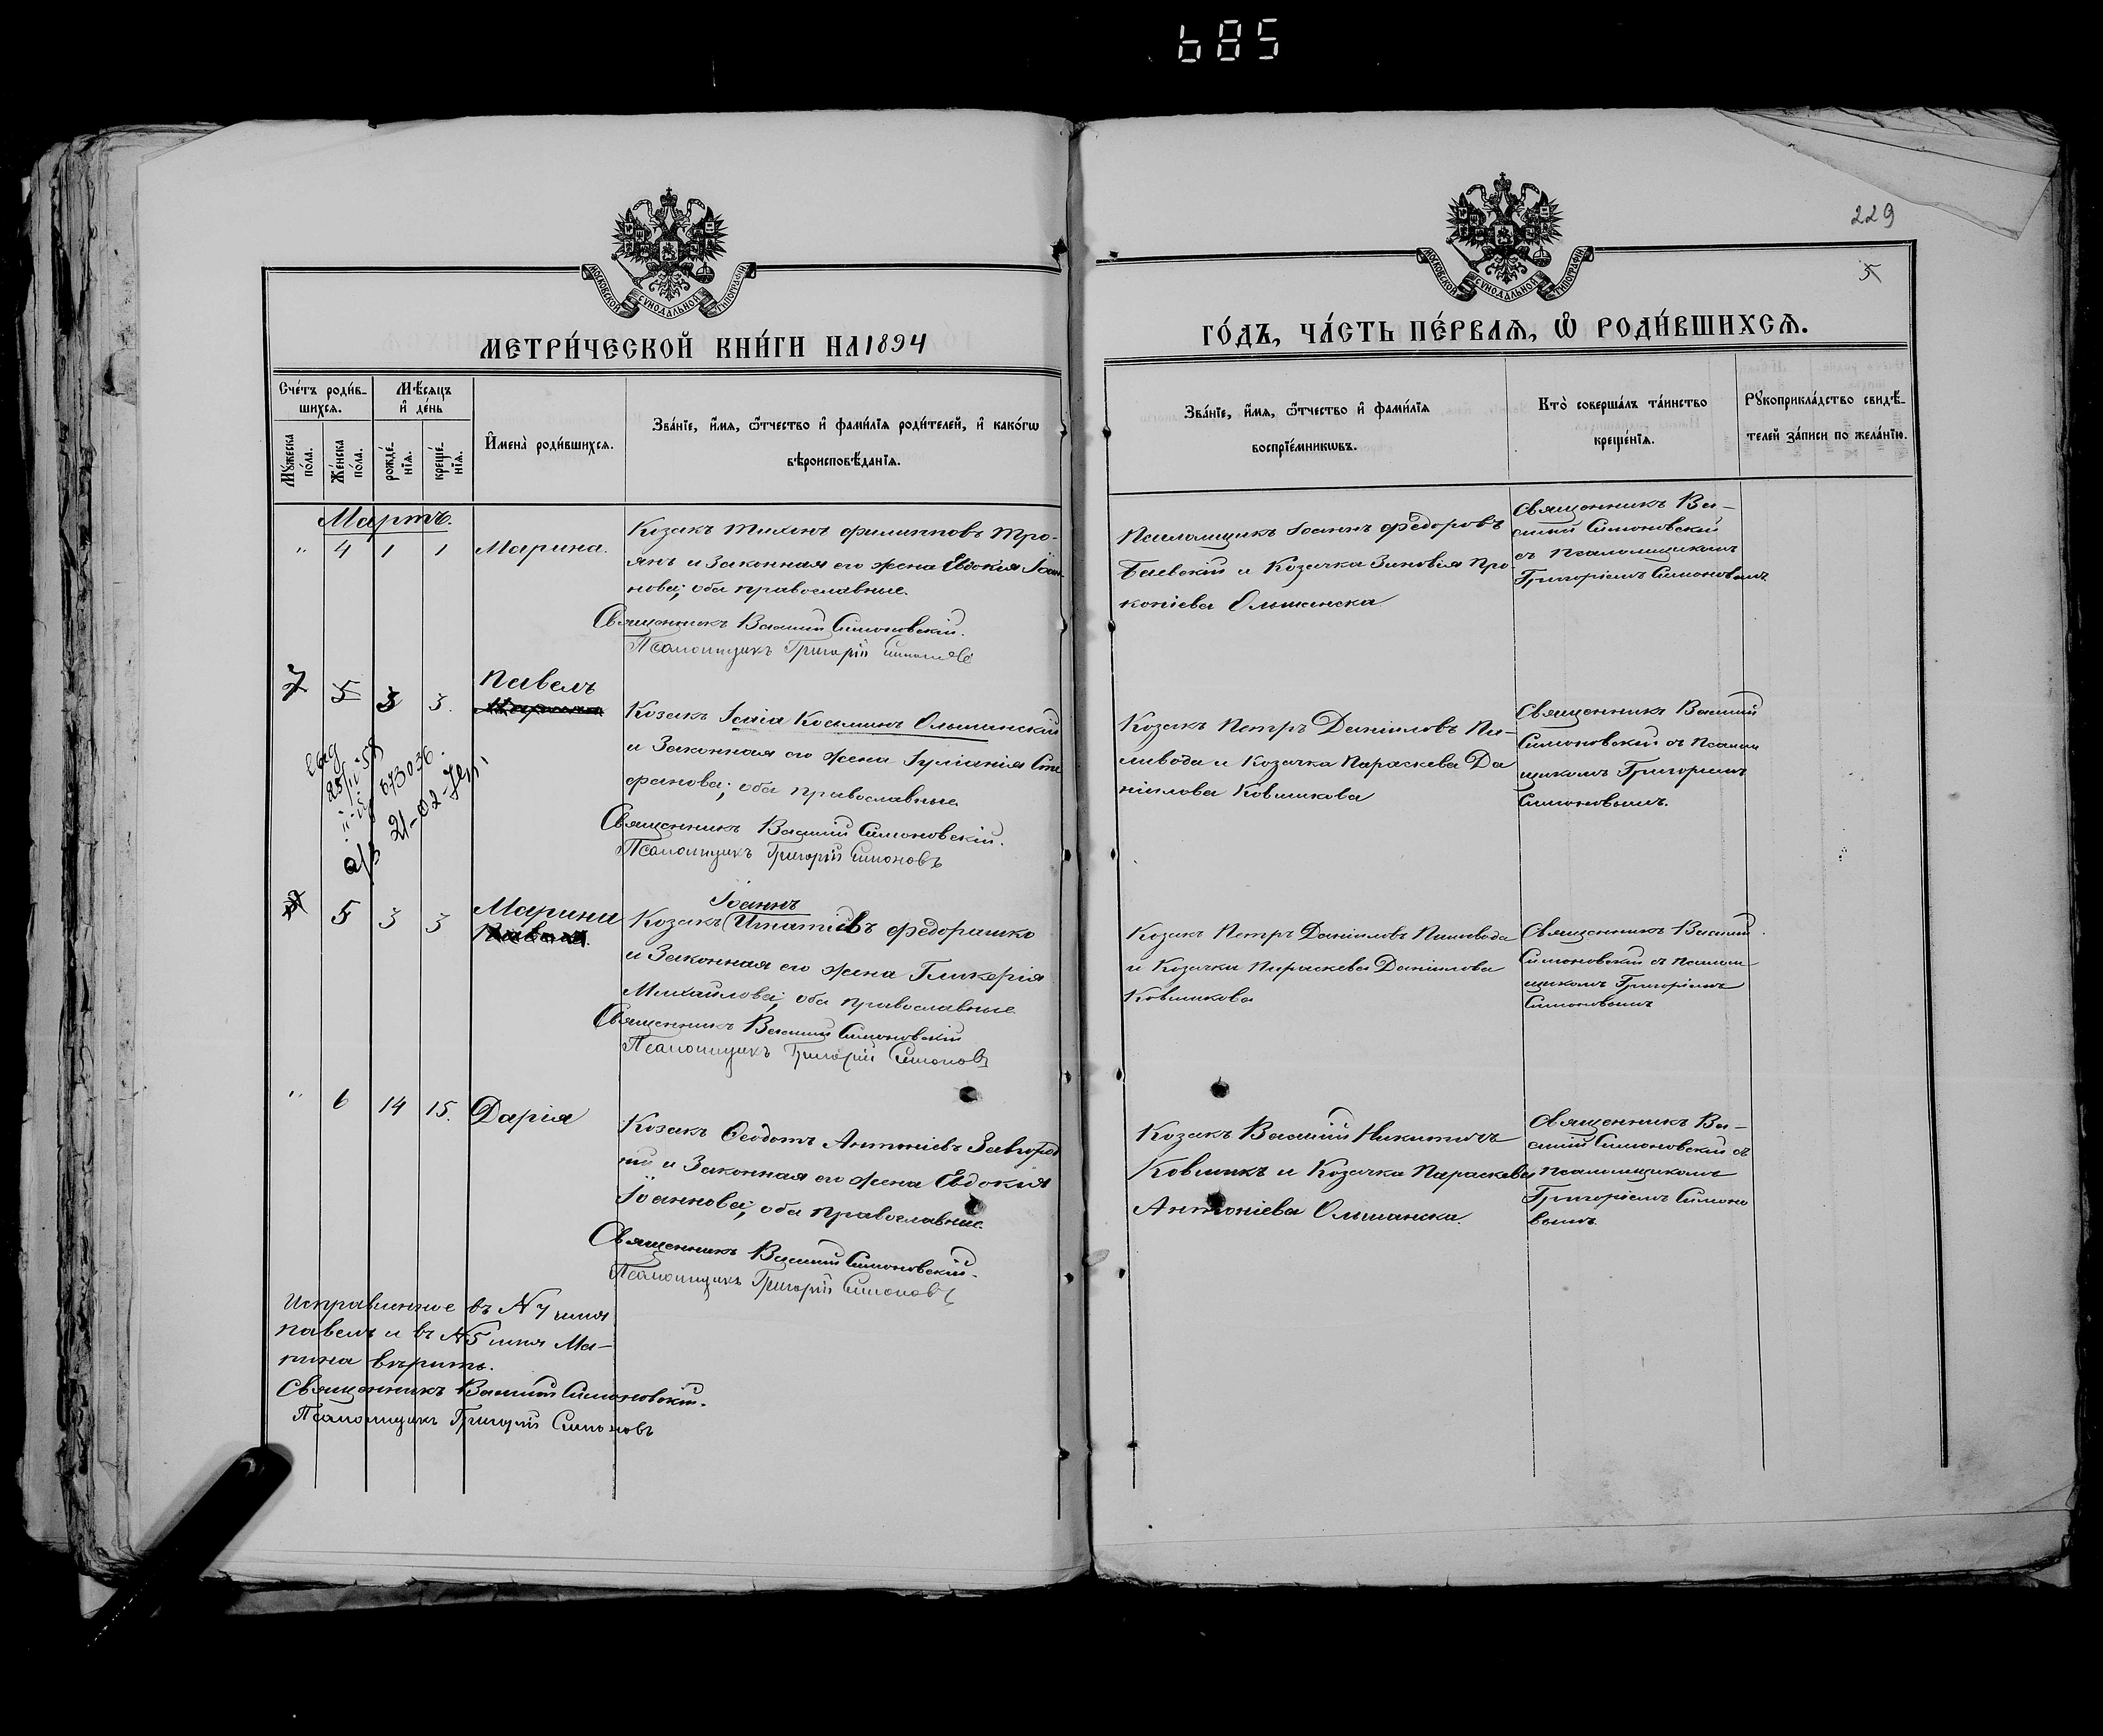 685
229
5
МОСКОВСКОЙ СѴНОДАЛЬНОЙ ТИПОГРАФІИ
МОСКОВСКОЙ СѴНОДАЛЬНОЙ ТИПОГРАФІИ
МЕТРИ́ЧЕСКОЙ КНИ́ГИ НА 1894
ГО́ДЪ, ЧА́СТЬ ПЕ́РВАѦ, Ѽ РОДИ́ВШИХСѦ.
Сче́тъ роди́в-
шихсѧ.
Мѣ́сяцъ
и҆ де́нь
Мꙋ́жеска
по́ла.
Же́нска
по́ла.
рожде́-
нїѧ.
креще́-
нїѧ.
И҆мена̀ роди́вшихсѧ.
Зва́нїе, и҆́мѧ, ѻ҆́тчество и҆ фами́лїѧ роди́телей, и҆ како́гѡ
вѣроисповѣ́данїѧ.
Зва́нїе, и҆́мѧ, ѻ҆́тчество и҆ фами́лїѧ
воспрїе́мникѡвъ.
Кто̀ соверша́лъ та́инство
креще́нїѧ.
Рꙋкоприкла́дство свидѣ́-
телей за́писи по жела́нїю.
Мартъ.
" 4 1 1 Марина.
Козакъ Тихонъ Филипповъ Тро-
янъ и законная его жена Евдокия Іоан-
нова; оба православные.
Священникъ Василий Симоновскій.
Псаломщикъ Григорій Симоновъ
Псаломщикъ Іоаннъ Федоровъ
Баевскій и Козачка Зиновія Про-
копіева Ольшанска
Священникъ Ва-
силий Симоновский
съ псаломщикомъ
Григоріемъ Симоновымъ
7 5 3 3.
Павелъ
Козакъ Исаія Косьминъ Ольшанский
и законная его жена Іуліанія Сте
фанова; оба православные.
Священникъ Василий Симоновскій.
Псаломщикъ Григорій Симоновъ
Козакъ Петръ Даніиловъ Пи-
ливода и Козачка Параскева Да
ніилова Ковшикова
Священникъ Василий
Симоновскій съ псалом
щикомъ Григоріемъ
Симоновымъ.
073036
21-02-
5 3 3
Марина
Іоаннъ
Козакъ (Игнатіевъ Федорашко
и законная его жена Гликерія
Михайлова; оба православные
Священникъ Василий Симоновскій
Псаломщикъ Григорій Симоновъ
Козакъ Петръ Даніиловъ Пиливода
и Козачка Параскева Даніилова
Ковшикова
Священникъ Василий
Симоновскій съ псалом
щикомъ Григоріемъ
Симоновымъ
" 6 14 15. Дарія
Козакъ Ѳеодотъ Антоніевъ Завгород
ній и законная его жена Евдокия
Іоаннова; оба православные.
Священникъ Василий Симоновскій.
Псаломщикъ Григорій Симоновъ
Козакъ Василий Никитичъ
Ковшикъ и Козачка Параскева
Антоніева Ольшанска.
Священникъ Ва-
силий Симоновскій съ
псаломщикомъ
Григоріемъ Симоно
вымъ.
Исправленное въ №7 имя
Павелъ и въ №5 имя Ма-
рина вѣрить.
Священникъ Василий Симоновскій.
Псаломщикъ Григорій Симоновъ